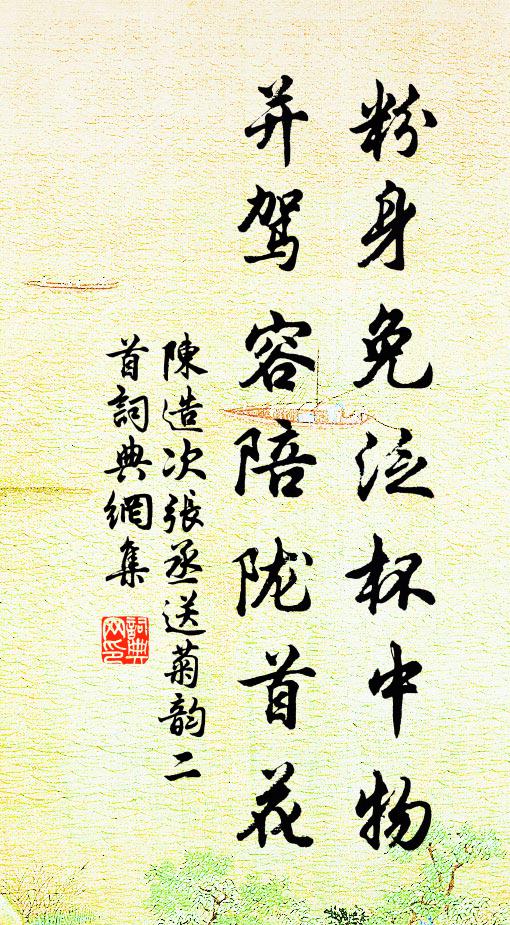 粉身免泛杯中物
并驾容陪陇首花
陳造次張丞送菊韵二
首詞典網集
詞典
网印